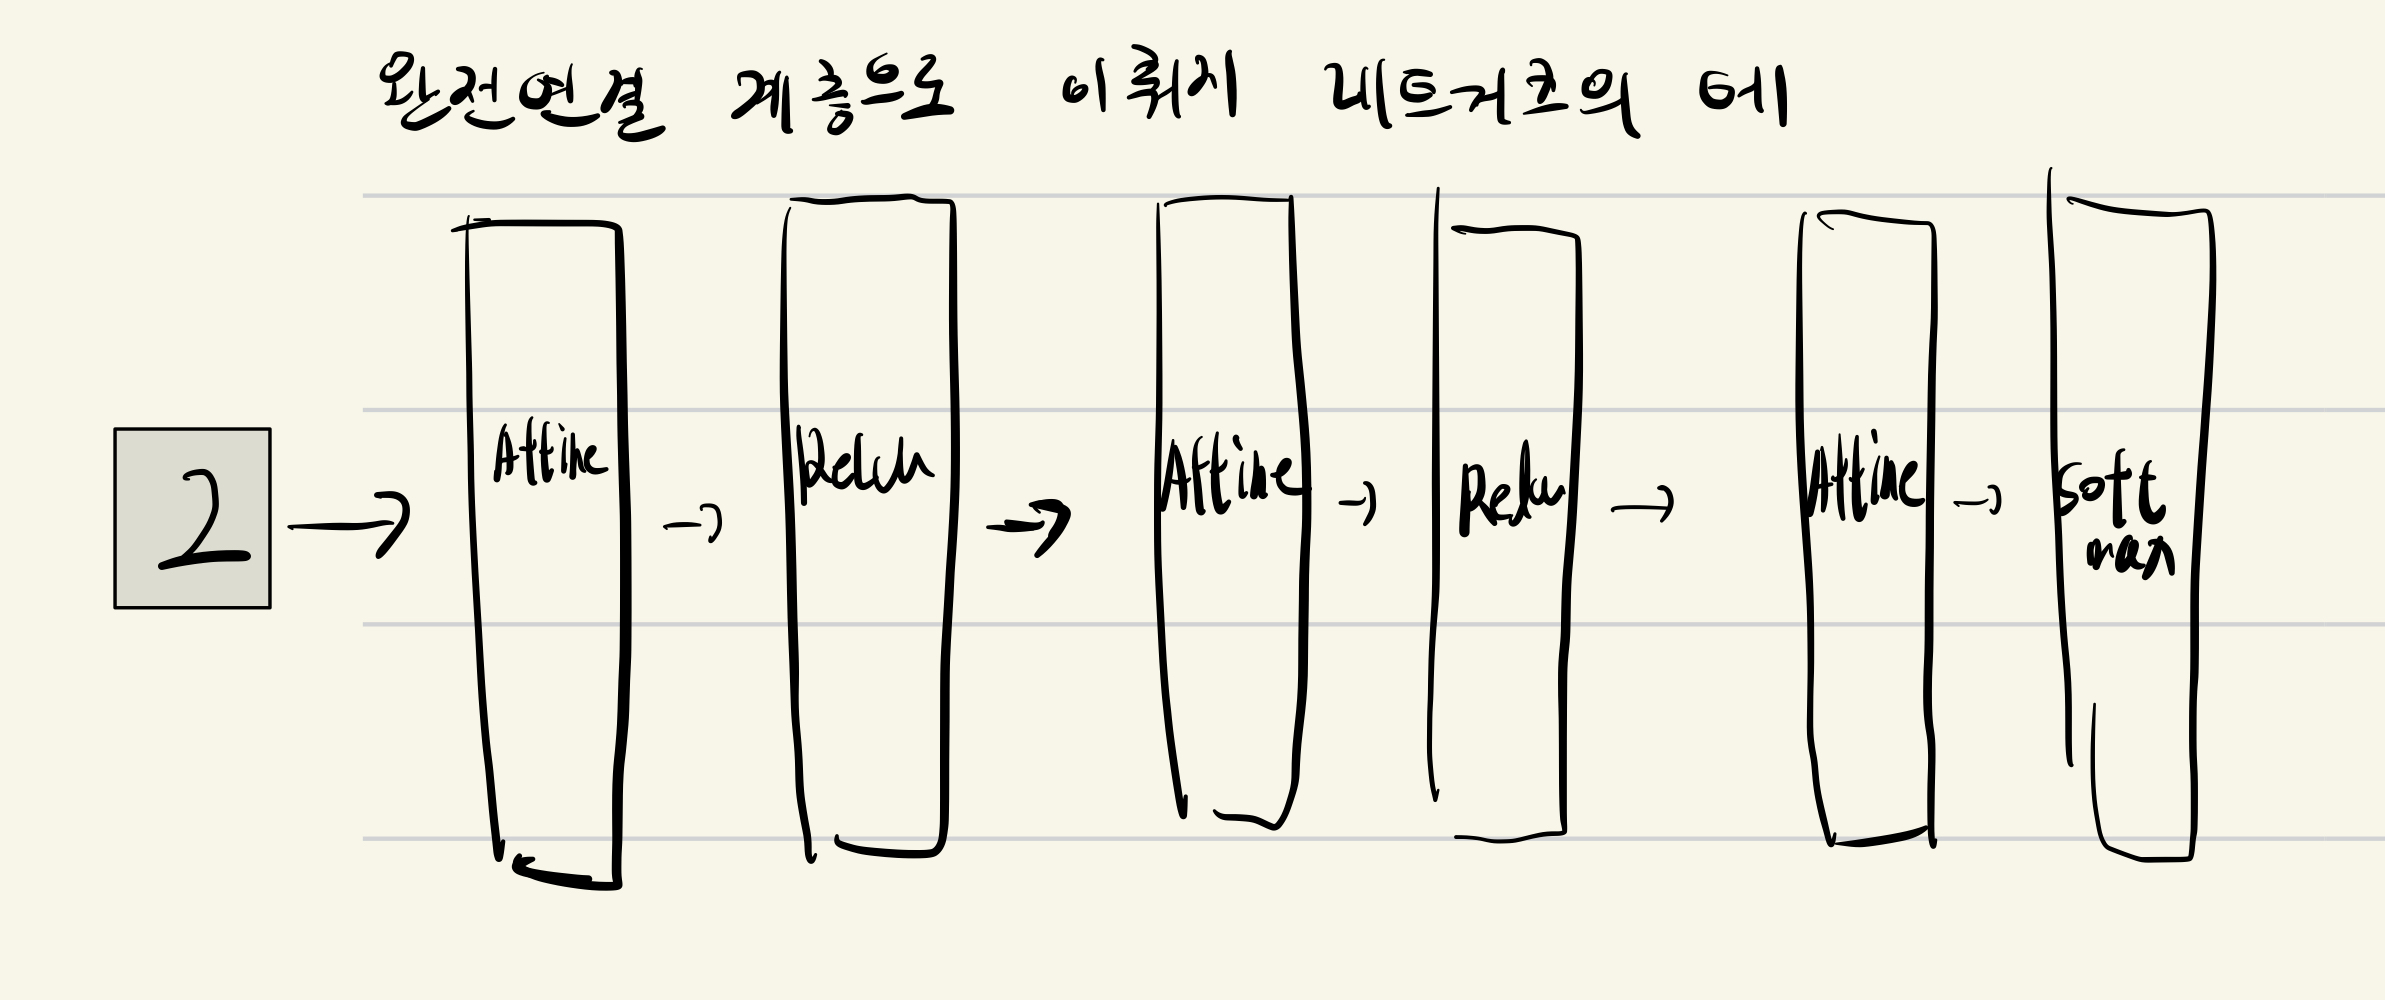 완전연결 계층으로 이뤄지 네트워크의 예
2
Affine
Relu
Affine
Relu
Affine
Soft
max